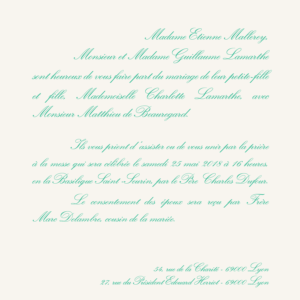 Madame Etienne Mallerey,
Monsieur et Madame Guillaume Lamarthe
sont heureux de vous faire part du mariage de leur petite-fille
et fille, Mademoiselle Charlotte Lamarthe, avec
Monsieur Matthieu de Beauregard.
Ils vous prient d'assister ou de vous unir par la prière
à la messe qui sera célébrée le samedi 25 mai 2018 à 16 heures,
en la Basilique Saint-Seurin, par le Père Charles Dufour.
Le consentement des époux sera reçu par Frère
Marc Delambre, cousin de la mariée.
54, rue de la Charité - 69000 Lyon
22, rue du Président Edouard Herriot - 69000 Lyon